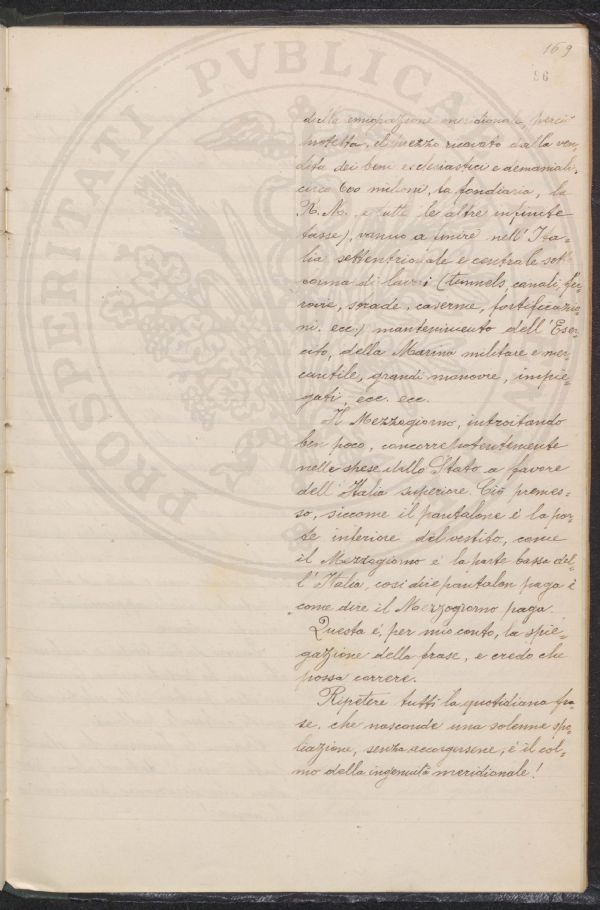 169
96
PROSPERITATI PVBLICAE
della emigrazione meridionale, perciò
protetta, il prezzo ricavato dalla ven=
dita dei beni ecclesiastici e demaniali,
circa 600 milioni, la fondiaria, la
R. M. e tutte le altre infinite
tasse), vanno a finire nell'Ita=
lia settentrionale e centrale sott
forma di lavori (tunnels, canali, fer=
rovie, strade, caserme, fortificazio=
ni. ecc.) mantenimento dell'Eser=
cito, della Marina militare e mer=
cantile, grandi manovre, impie=
gati, ecc. ecc.
Il Mezzogiorno, introitando
ben poco, concorre potentemente
nelle spese dello Stato a favore
dell'Italia superiore. Ciò premes=
so, siccome il pantalone è la par=
te inferiore del vestito, come
il Mezzogiorno è la parte bassa del=
l'Italia, così dire pantalon paga è
come dire il Mezzogiorno paga.
Questa è, per mio conto, la spie=
gazione della frase, e credo che
possa correre.
Ripetere tutti la quotidiana fra=
se, che nasconde una solenne spo=
liazione, senza accorgersene, è il col=
mo della ingenuità meridionale!